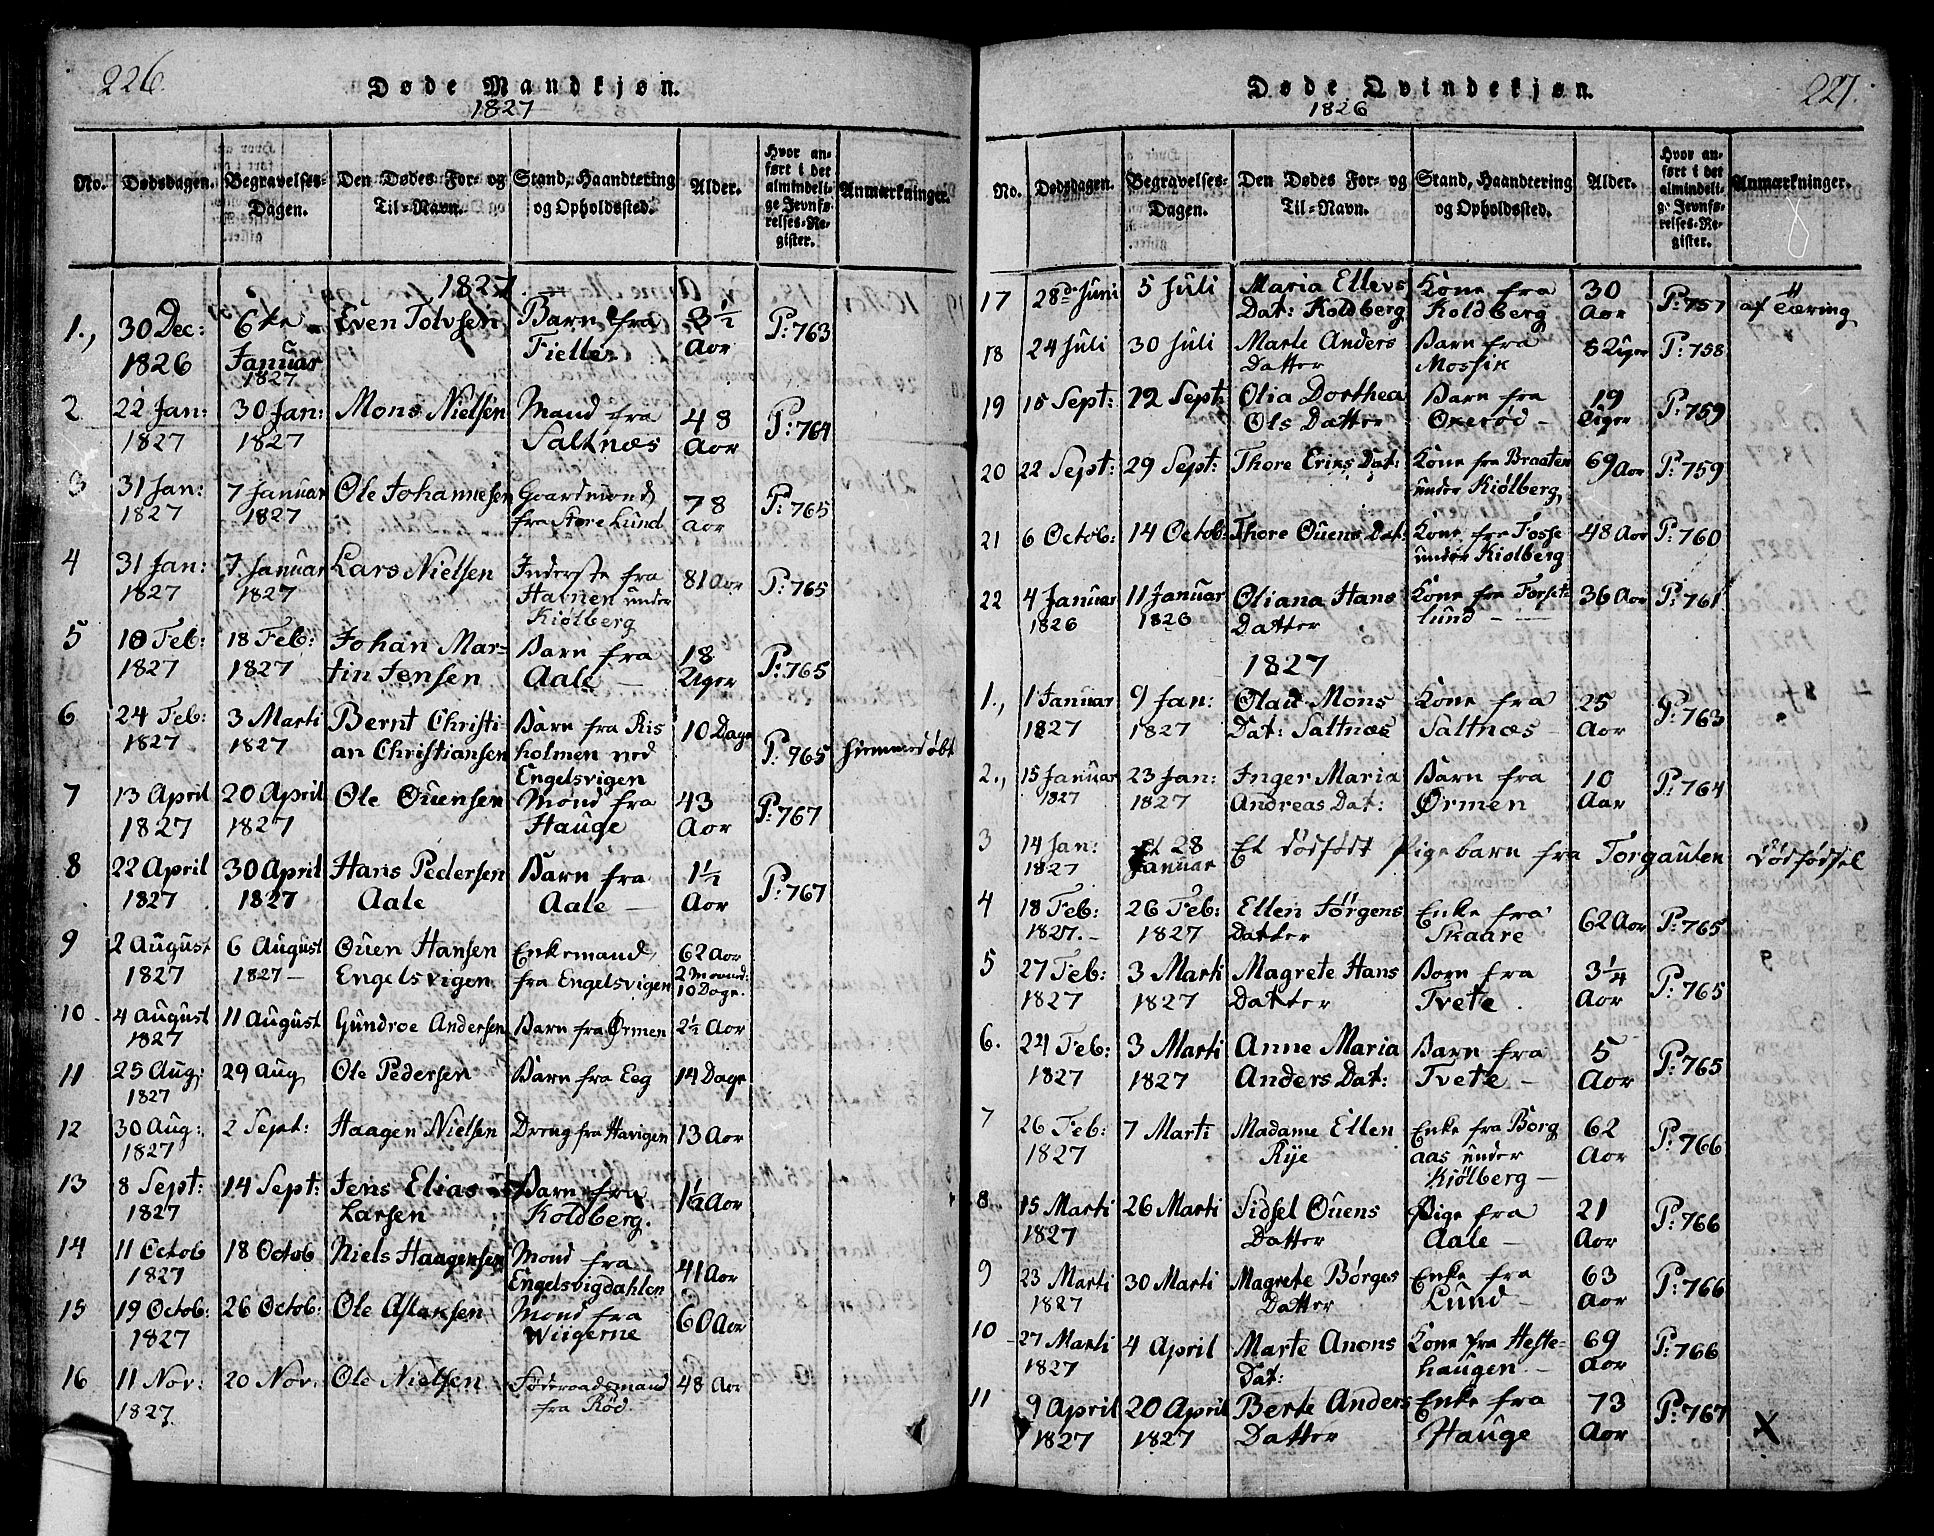 226.
Døde Mandkjøn.
1827
No. Dødsdagen. Begravelses-Dagen. Den Dødes For- og Til-Navn. Stand, Haandtering og Opholdssted. Alder. Hvor anført i det almindelige Jevnførelses-Register. Anmærkninger.
1827
1., 30 Dec: 1826 6te Januar 1827 Even Tolvsen Barn fra Fieller 3½ Aar P: 763
2 22 Jan: 1827 30 Jan: 1827 Mons Nielsen Mand fra Saltnæs 48 Aar P: 764
3 31 Jan: 1827 7 Januar 1827 Ole Johannesen Gaardmand fra Store Lund 78 Aar P: 765
4 31 Jan: 1827 7 Januar 1827 Lars Nielsen Inderste fra Havnen under Kiölberg 81 Aar P: 765
5 10 Feb: 1827 18 Feb: 1827 Johan Martin Jensen Barn fra Aale 18 Uger P: 765
6 24 Feb: 1827 3 Marti 1827 Bernt Christian Christiansen Barn fra Risholmen ved Engelsvigen 10 Dage P: 765 hiemmedøbt
7 13 April 1827 20 April 1827 Ole Ouensen Mand fra Hauge 43 Aar P: 767
8 22 April 1827 30 April 1827 Hans Pedersen Aale Barn fra Aale 1½ Aar P: 767
9 2 August 1827 6 August 1827 Ouen Hansen Engelsvigen Enkemand fra Engelsvigen 62 Aar 2 Maaned: 10 Dage.
10 4 August 1827 11 August Gundroe Andersen Barn fra Ørmen 2½ Aar
11 25 Aug: 1827 29 Aug Ole Pedersen Barn fra Eeg 14 Dage
12 30 Aug: 1827 2 Sept: Haagen Nielsen Dreng fra Havigen 13 Aar
13 8 Sept: 1827 14 Sept: Jens Elias Larsen Barn fra Koldberg. 1½ Aar
14 11 Octob 1827 18 Octob Niels Haagensen Mand fra Engelsvigdahlen 41 Aar
15 19 Octob: 1827 26 Octob: Ole Aslaksen Mand fra Wiigerne 60 Aar
16 11 Nov: 1827 20 Nov. Ole Nielsen Föderaadsmand fra Rød 48 Aar
227.
Døde Qvindekjøn.
1826
No. Dødsdagen. Begravelses-Dagen. Den Dødes For- og Til-Navn. Stand, Haandtering og Opholdssted. Alder. Hvor anført i det almindelig: Jevnførelses-Register. Anmærkninger.
17 28de Juni 5 Juli Maria Ellevs Dat: Koldberg Kone fra Koldberg 30 Aar P: 757 af Tæring
18 24 Juli 30 Juli Marte Anders Datter Barn fra Mossik 5 Uger P: 758
19 15 Sept: 22 Sept: Olia Dorthea Ols Datter Barn fra Oxerød 19 Uger P: 759
20 22 Sept: 29 Sept: Thore Eriks Dat: Kone fra Braaten under Kiölberg 69 Aar P: 759
21 6 Octob: 14 Octob: Thore Ouens Dat: Kone fra Fosse under Kiolberg 48 Aar P: 760
22 4 Januar 1826 11 Januar 1826 Oliana Hans Datter Kone fra Torsetlund 36 Aar P: 761
1827
1., 1 Januar 1827 9 Jan: 1827 Olau Mons Dat: Saltnæs Kone fra Saltnæs 25 Aar P: 763
2., 15 Januar 1827 23 Jan: 1827 Inger Maria Andreas Dat: Barn fra Ørmen 10 Aar P: 764
3 14 Jan: 1827 28 Januar Et dödfödt Pigebarn fra Torgauten Dödfödsel
4 18 Feb: 1827. 26 Feb: 1827 Ellen Jörgens Datter Enke fra Skaare 62 Aar P: 765
5 27 Feb: 1827 3 Marti 1827 Magrete Hans Datter Barn fra Tvete 3¼ Aar P: 765
6. 24 Feb: 1827 3 Marti 1827 Anne Maria Anders Dat: Barn fra Tvete 5 Aar P: 765
7 26 Feb: 1827 7 Marti Madame Ellen Rye Enke fra Borgaas under Kiölberg 62 Aar P: 766
8. 15 Marti 1827 26 Marti Sidsel Ouens Datter Pige fra Aale 21 Aar P: 766
9 23 Marti 1827 30 Marti Magrete Börges Datter Enke fra Lund 63 Aar P: 766
10 27 Marti 1827 4 April Marte Anons Dat: Kone fra Hestehaugen 69 Aar P: 766
11 9 April 1827 20 April 1827 Berte Anders Datter Enke fra Hauge 73 Aar P: 767 X